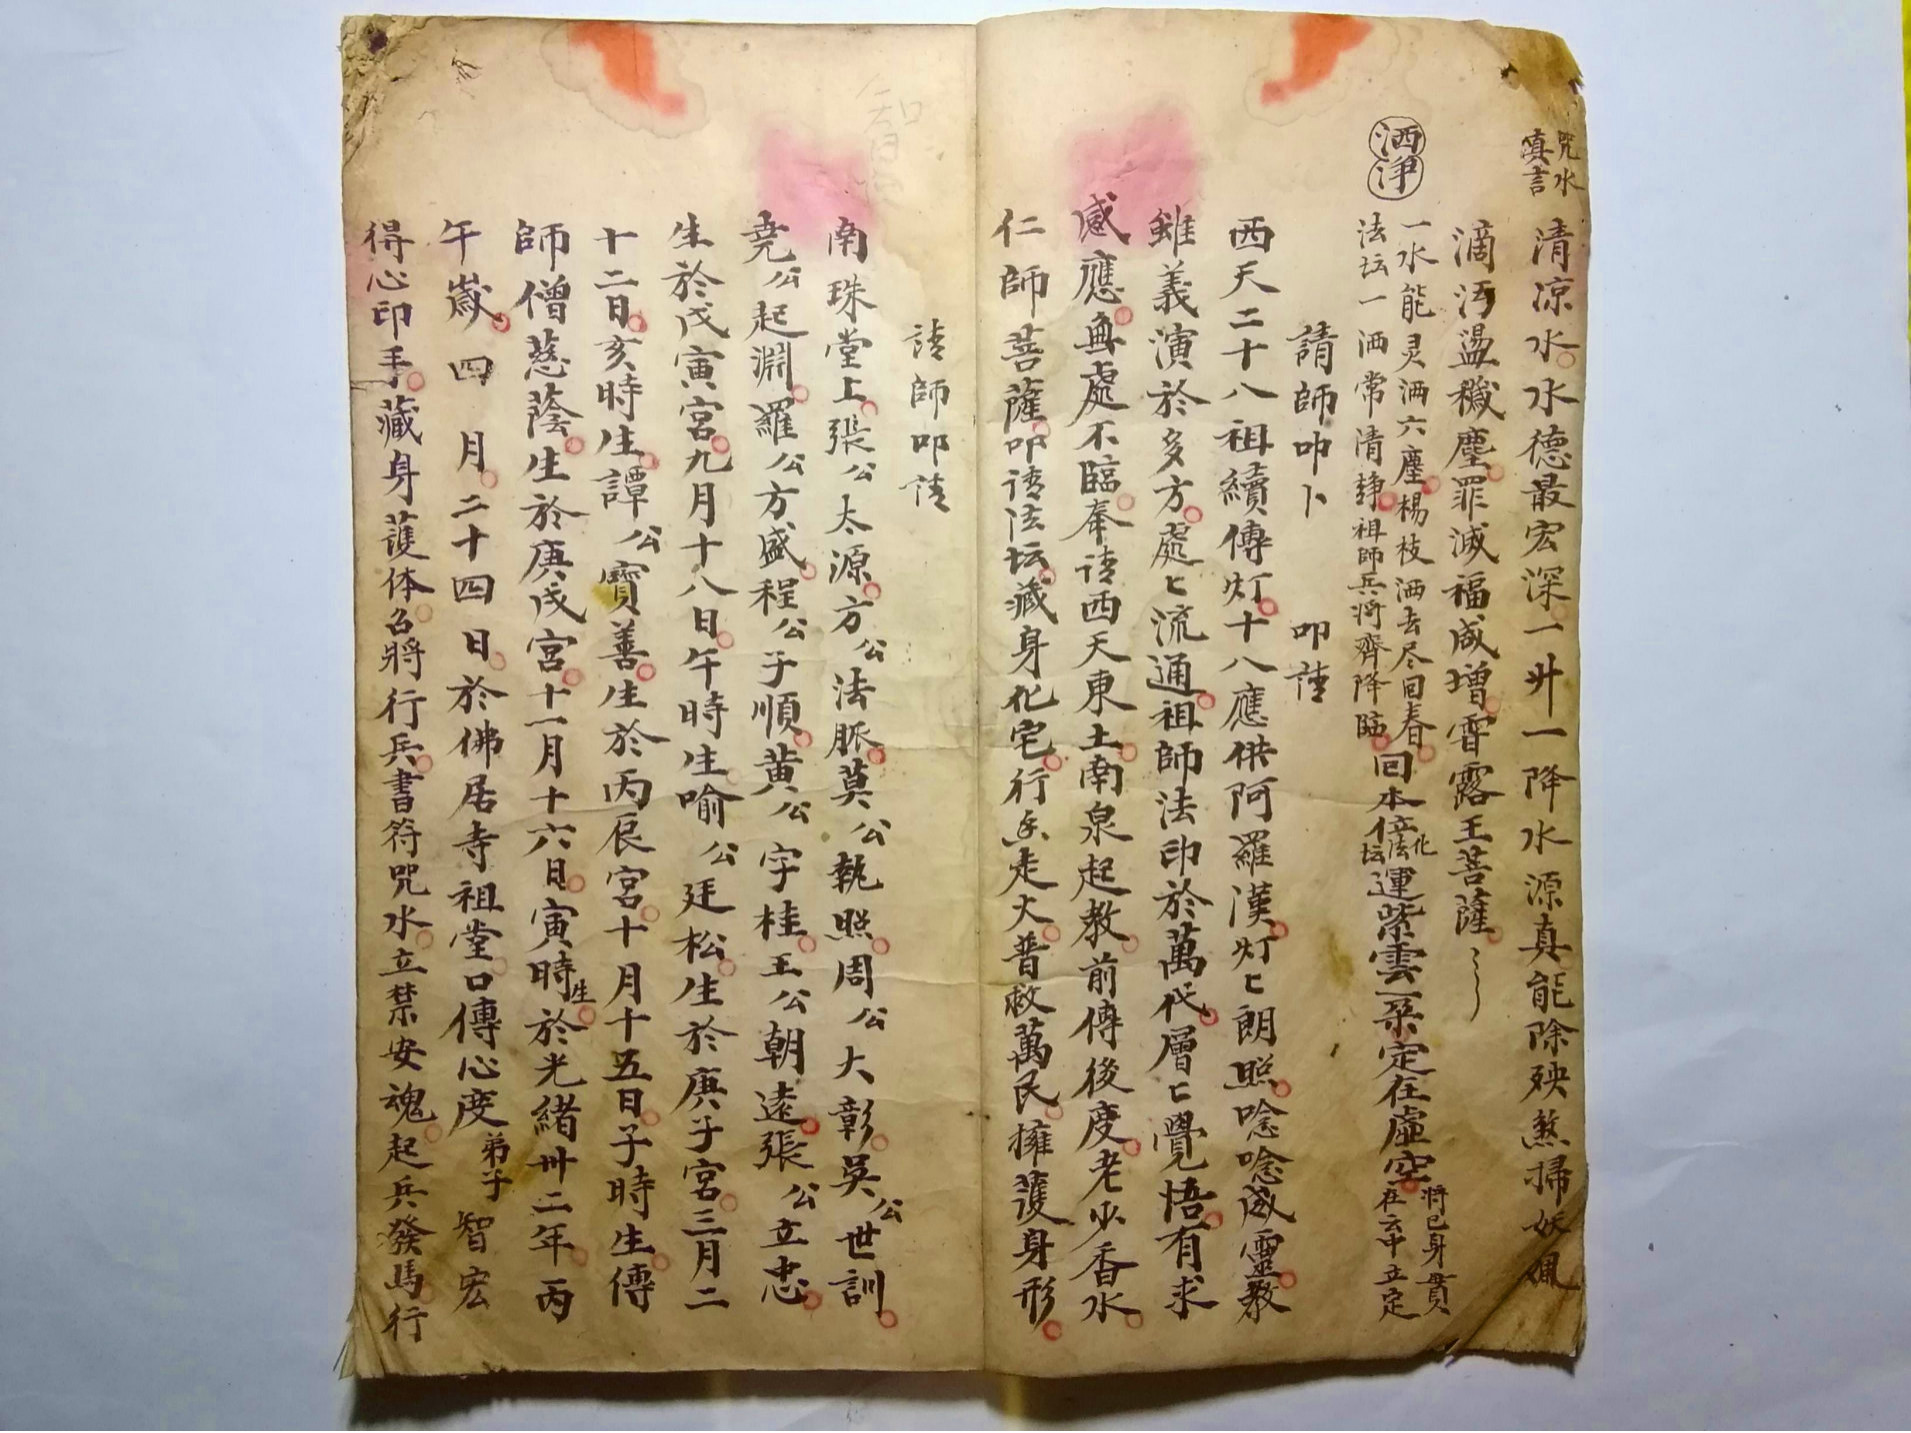 咒水
真言
清凉水水德最宏深一廾一降水源真能除殃煞掃妖
滴污盪穢塵罪滅福咸增雪露王菩薩
洒净
一水能灵洒六塵楊枝洒去尽回春
法坛一洒常清静祖師兵將齊降臨
回本位
化法坛
運紫雲一朶定在虛空
將己身
在云中立定
請師叩卜 叩請
西天二十八祖續傳灯十八應供阿羅漢灯匕朗照唸唸咸靈教
雖義演於多方處匕流通祖師法印於萬代層匕覺悟有求
感應無處不臨奉请西天東土南泉起教前傳後度老少香水
仁師菩薩叩请法坛藏身化宅行走大普救萬民擁護身形
请師叩请
南珠堂上張公太源方公法脈莫公執照周公大彰吳公世訓
堯公起淵羅公方盛程公子順黄公字桂王公朝遠張公立忠
生於戊寅宮九月十八日午時生喻公廷松生於庚子宮三月二
十二日亥時生譚公寳善生於丙辰宮十月十五日子時生傳
師僧慈蔭生於庚戌宮十一月十六日寅時生於光緒卅二年丙
午歲四月二十四日於佛居寺祖堂口傳心度弟子智宏
得心印手藏身護体召將行兵書符咒水立禁安魂起兵發馬行